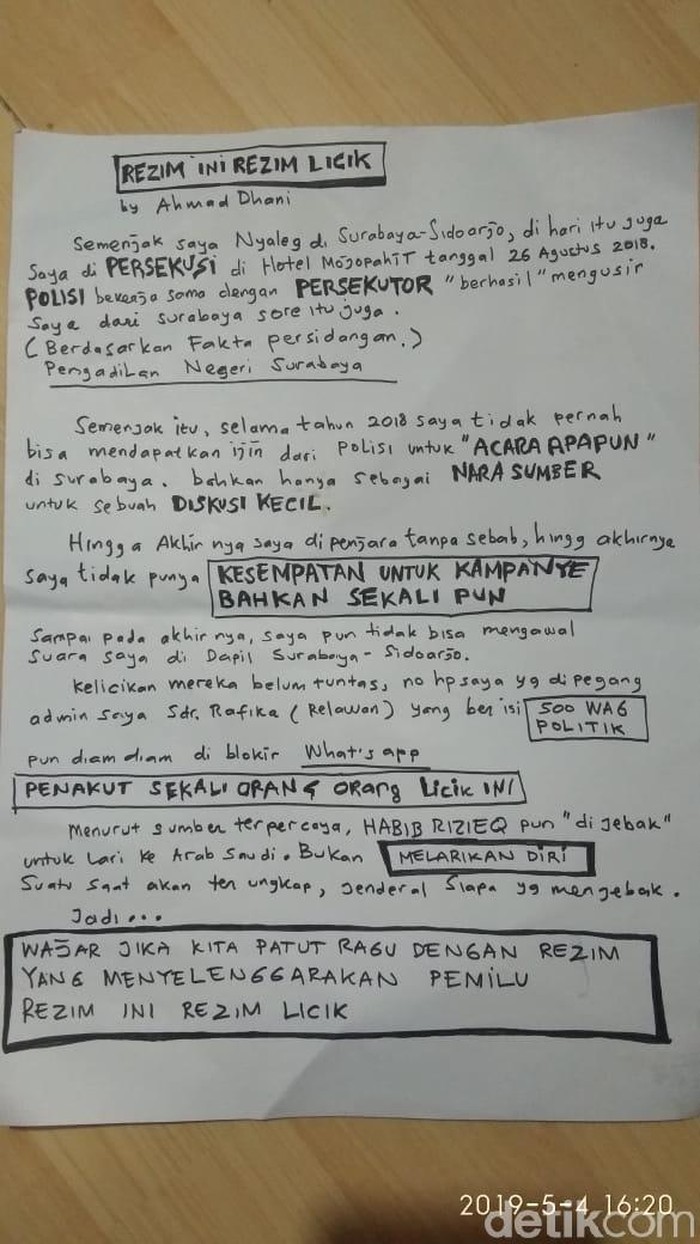 REZIM INI REZIM LICIK
by Ahmad Dhani
Semenjak saya Nyaleg di Surabaya-Sidoarjo, di hari itu juga
Saya di PERSEKUSI di Hotel Mojopahit tanggal 26 Agustus 2018.
POLISI bekerja sama dengan PERSEKUTOR "berhasil" mengusir
Saya dari surabaya sore itu juga.
(Berdasarkan Fakta persidangan.)
Pengadilan Negeri Surabaya
Semenjak itu, selama tahun 2018 saya tidak pernah
bisa mendapatkan ijin dari Polisi untuk "ACARA APAPUN"
di surabaya. bahkan hanya sebagai NARA SUMBER
untuk sebuah DISKUSI KECIL.
Hingga Akhir nya saya di penjara tanpa sebab, hingg akhirnya
saya tidak punya KESEMPATAN UNTUK KAMPANYE
BAHKAN SEKALI PUN
Sampai pada akhir nya, saya pun tidak bisa mengawal
suara saya di Dapil Surabaya - Sidoarjo.
Kelicikan mereka belum tuntas, no hp saya yg di pegang
admin saya Sdr. Rafika (Relawan) yang ber isi 500 WAG
POLITIK
pun diam diam di blokir What's app
PENAKUT SEKALI ORANG ORang Licik INI
Menurut sumber terpercaya, HABIB RIZIEQ pun "di jebak"
untuk Lari ke Arab Saudi. Bukan MELARIKAN DIRI
Suatu saat akan ter ungkap, Jenderal Siapa yg menjebak.
Jadi...
WAJAR JIKA KITA PATUT RAGU DENGAN REZIM
YANG MENYELENGGARAKAN PEMILU
REZIM INI REZIM LICIK
2019-5-4 16:20
detikcom